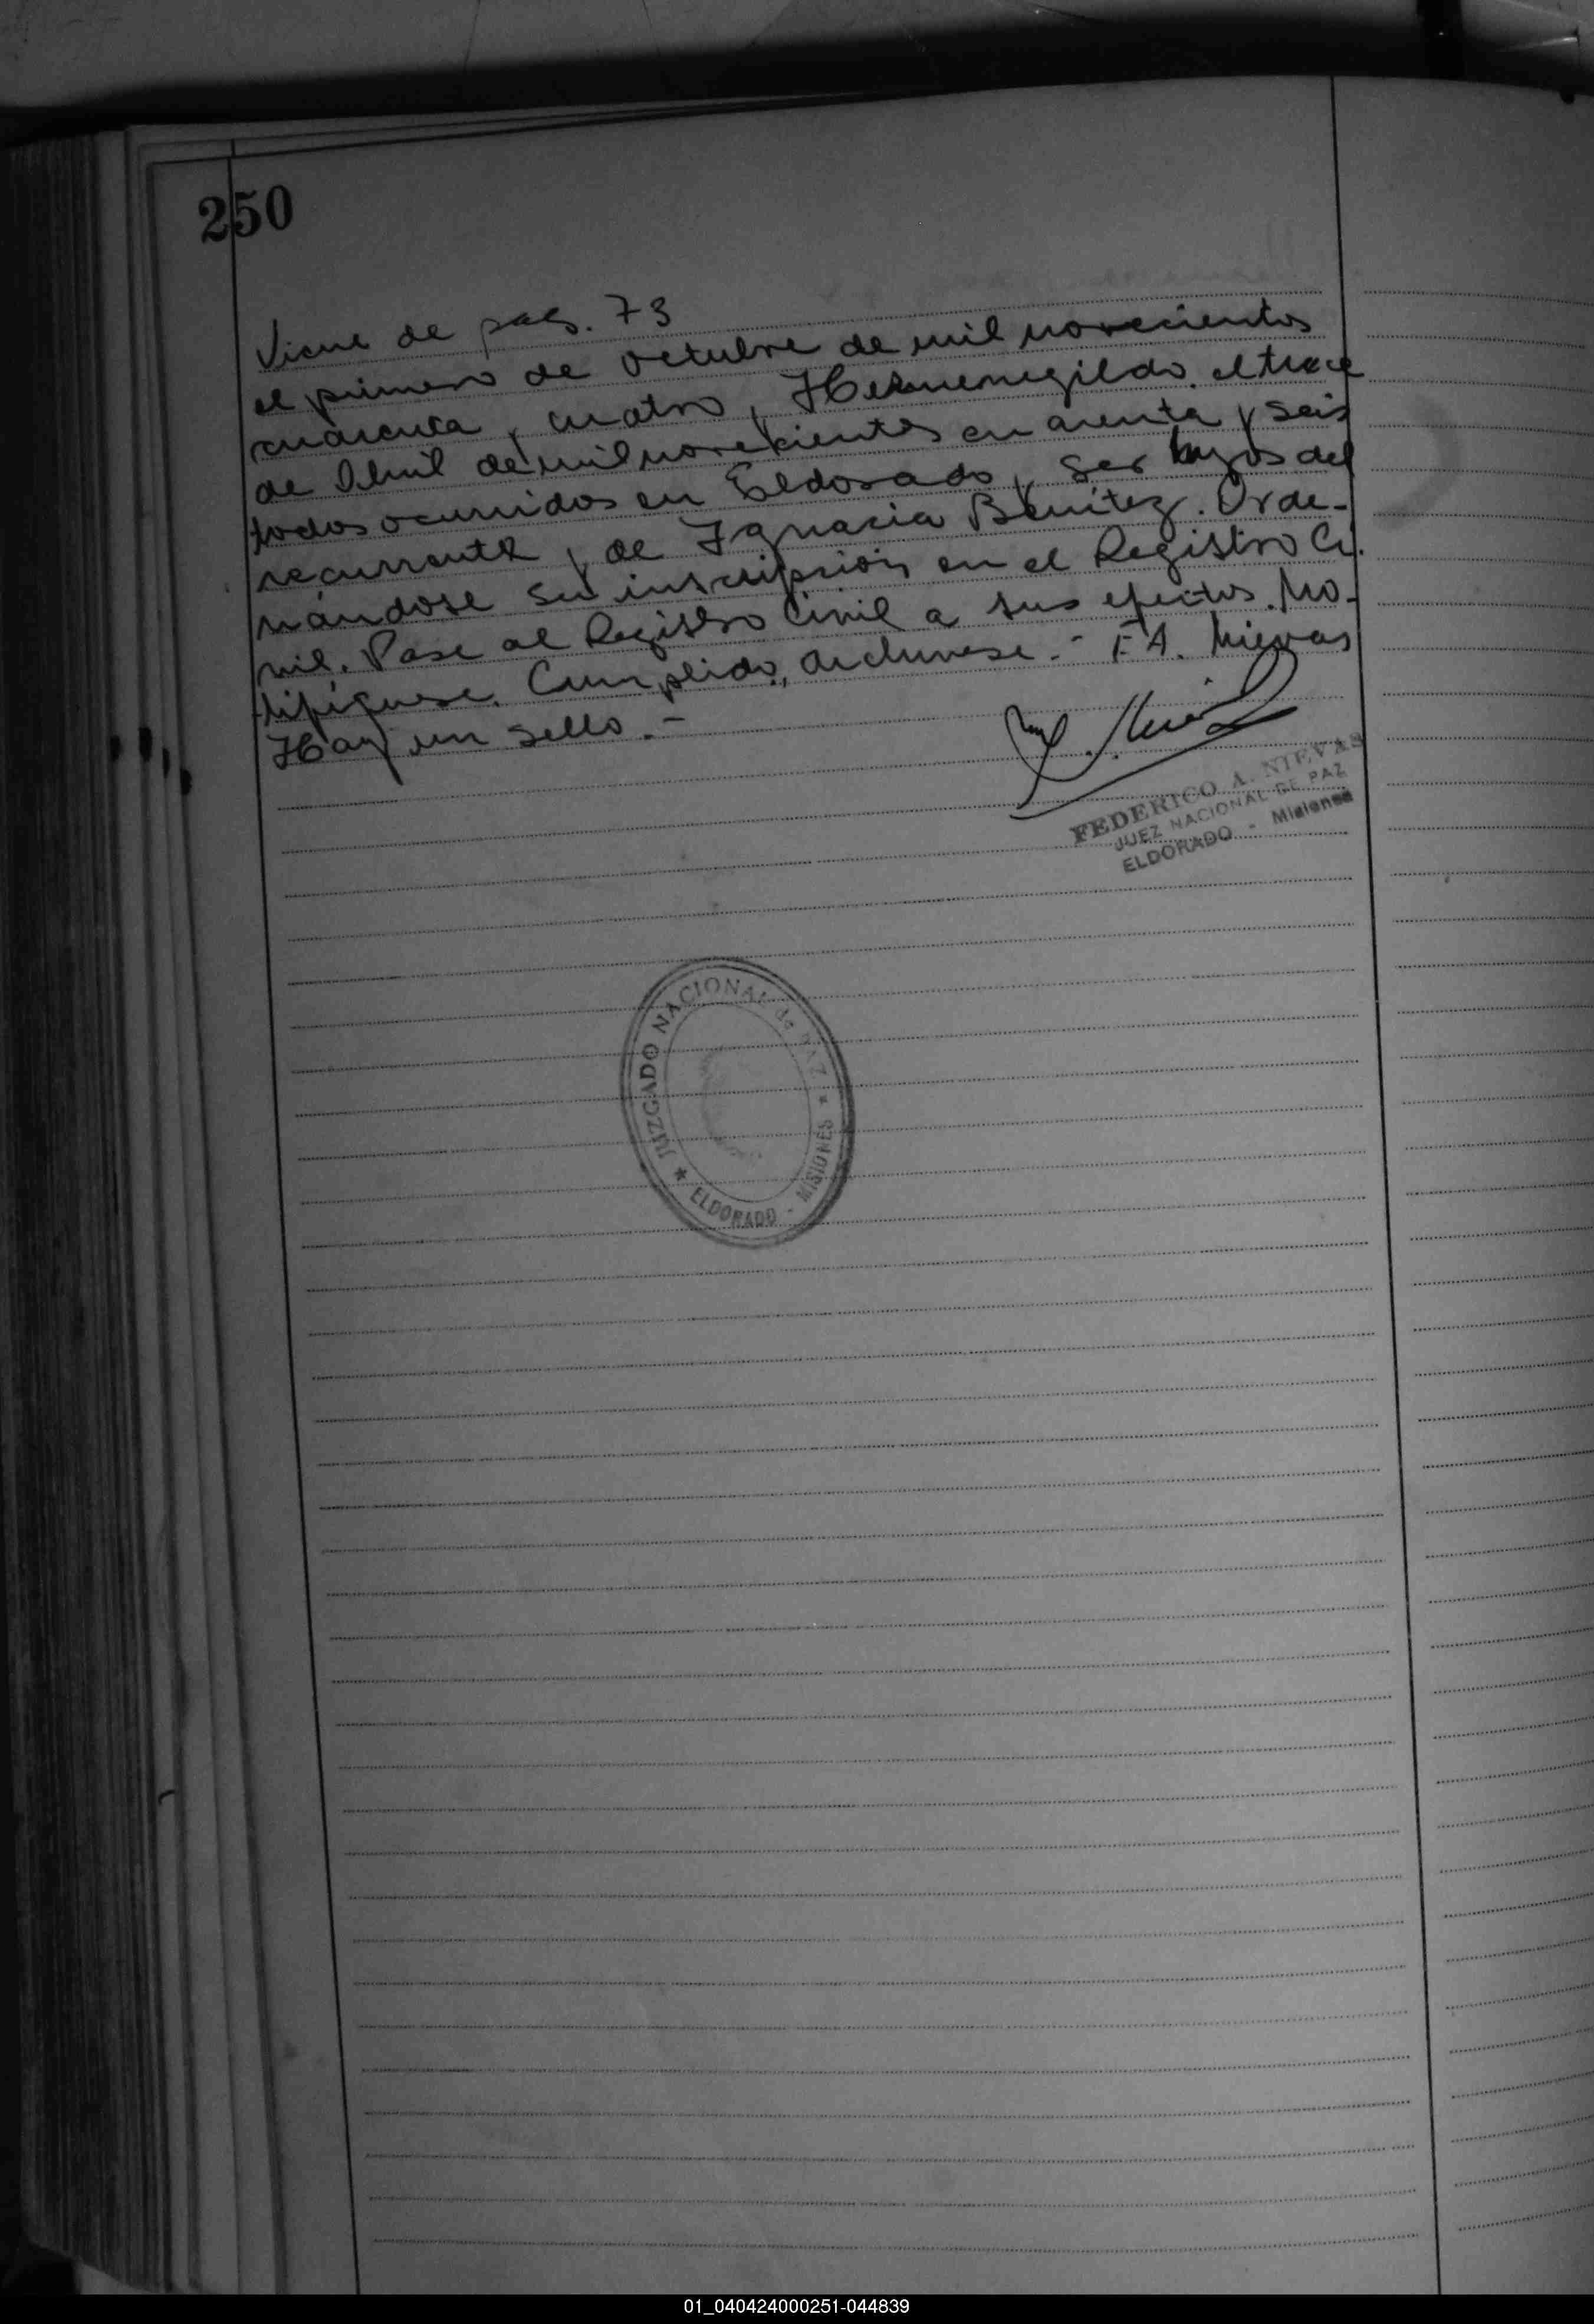 250
Viene de pag. 73
el primero de octubre de mil novecientos
cuarenta y cuatro, Hermenegildo el trece
de Abril de mil novecientos cuarenta y seis
todos ocurridos en Eldorado, ser hijos del
recurrente y de Ignacia Benítez. Orde-
nándose su inscripción en el Registro Ci-
vil. Pase al Registro Civil a sus efectos. No-
tifíquese. Cumplido, archívese.- F.A. Nievas
Hay un sello.-
FEDERICO A. NIEVAS
JUEZ NACIONAL DE PAZ
ELDORADO - Misiones
JUZGADO NACIONAL de PAZ
★ ELDORADO - MISIONES ★
01_040424000251-044839